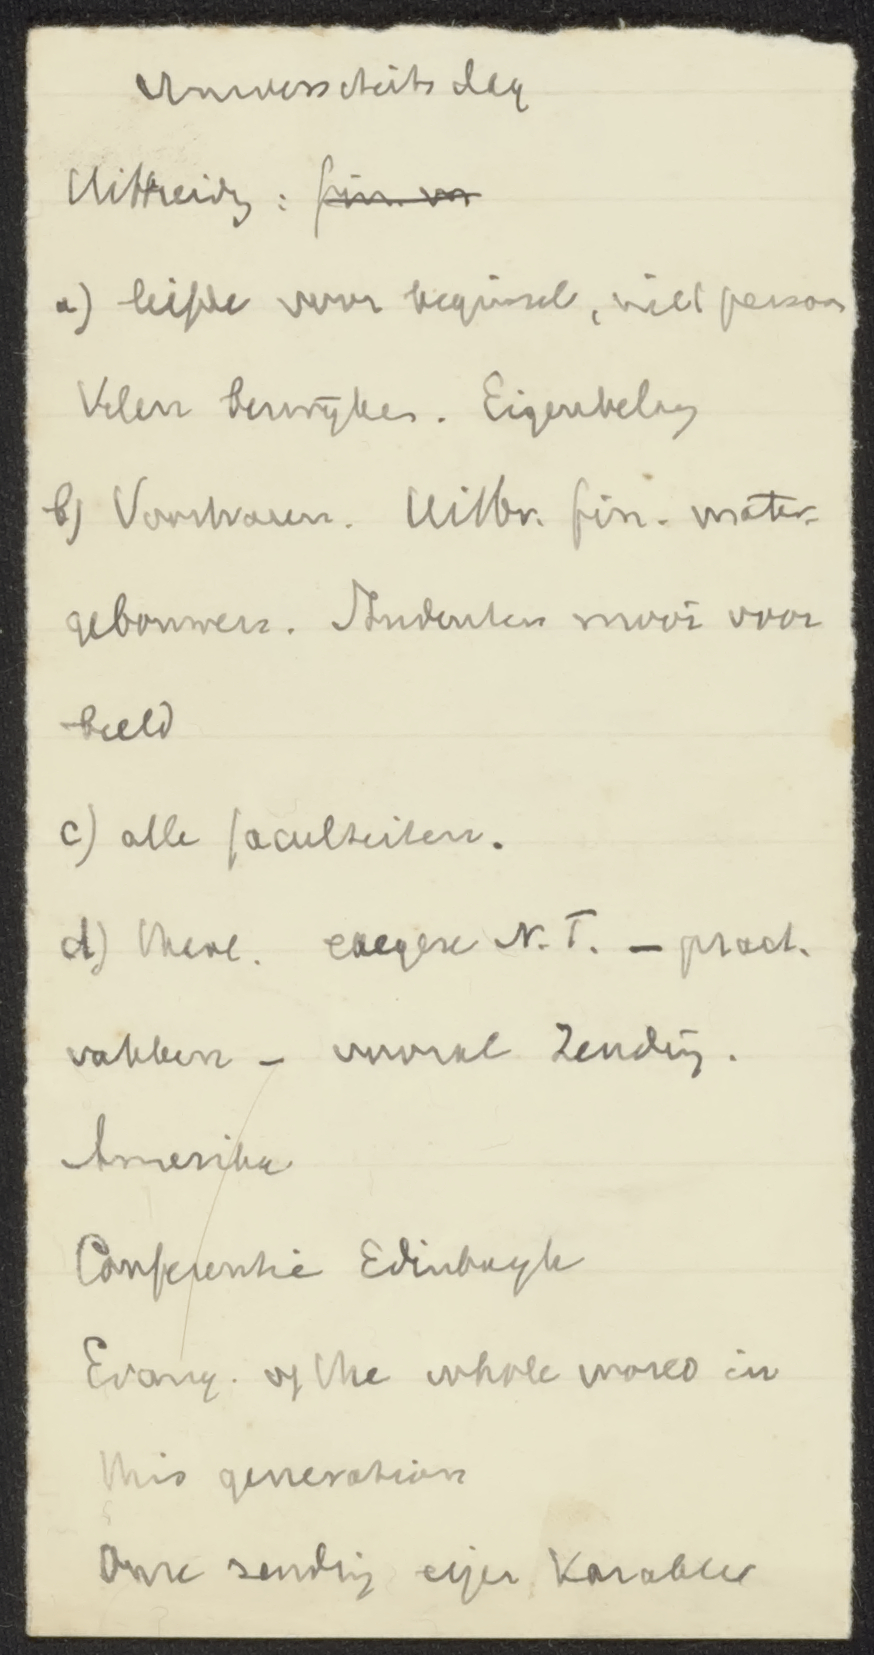 Universiteitsdag
Uitbreidg : fin. vr
a) liefde voor beginsel, niet persoon
Velen bezwijken. Eigenbelang
b) Voortvaren. Uitbr. fin. mater.
gebouwen. Studenten mooi voor
beeld
c) alle faculteiten.
d) theol. exegese N.T. — pract.
vakken — vooral Zending.
Amerika
Conferentie Edinburgh
Evang. of the whole world in
this generation
Onze zending eigen Karakter